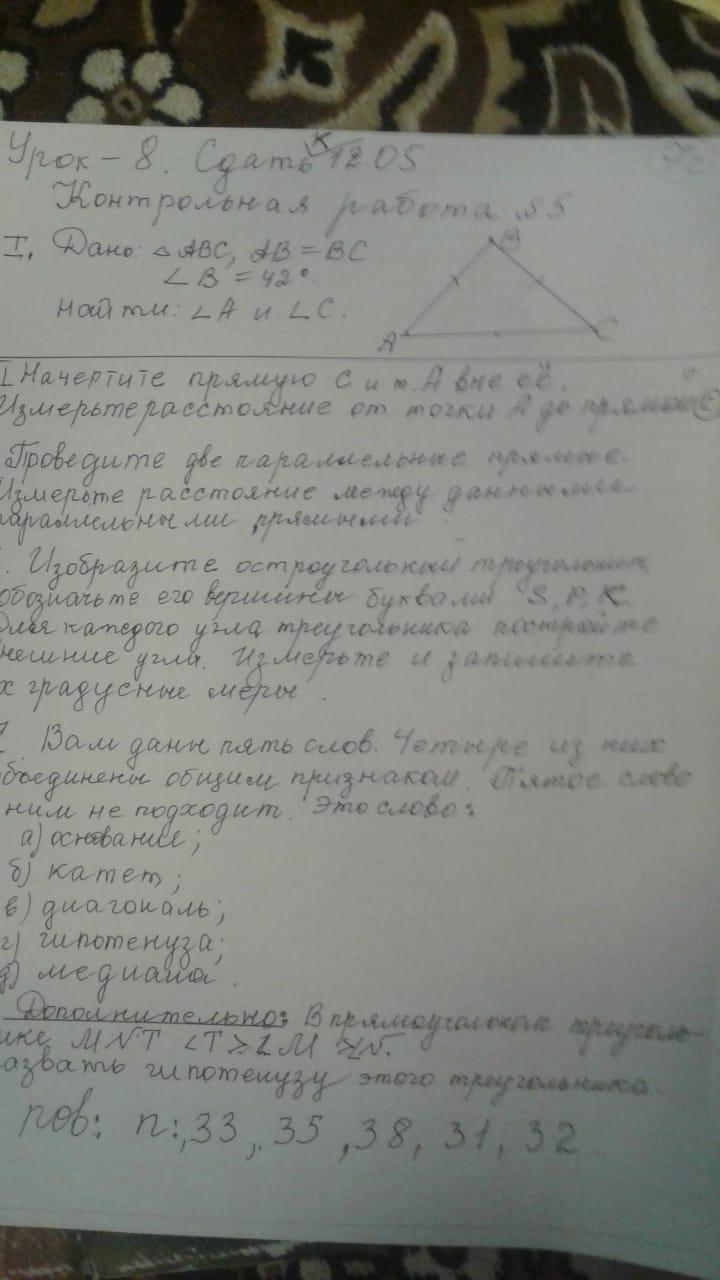 Урок - 8. Сдать к 12.05
Контрольная работа №5
I. Дано: △ABC, AB = BC
∠B = 42°.
Найти: ∠A и ∠C.
B
A
C
I Начертите прямую c и т. A вне её.
Измерьте расстояние от точки A до прямой c
Проведите две параллельные прямые.
Измерьте расстояние между данными
параллельными прямыми
. Изобразите остроугольный треугольник
обозначьте его вершины буквами S, P, K.
Для каждого угла треугольника постройте
нешние углы. Измерьте и запишите
х градусные меры.
Вам даны пять слов. Четыре из них
бъединены общим признаком. Пятое слово
ним не подходит. Это слово:
а) основание;
б) катет;
в) диагональ;
г) гипотенуза;
д) медиана.
Дополнительно: В прямоугольном треуголь-
ике MNT ∠T > ∠M > ∠N.
азвать гипотенузу этого треугольника
пов: п:,33, 35, 38, 31, 32